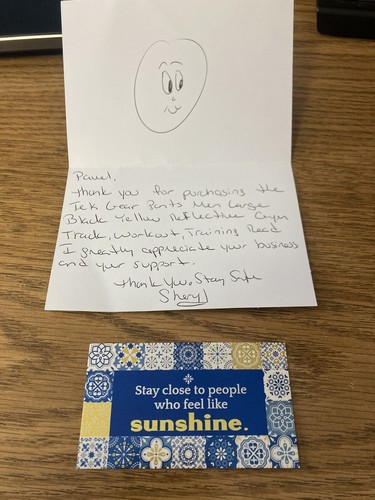 Pavel,
Thank you for purchasing the
Tek Gear Pants Men Large
Black Yellow Reflective Gym
Track, Workout, Training Read
I greatly appreciate your business
and your support.
Thank You. Stay Safe
Sheryl
Stay close to people
who feel like
sunshine.